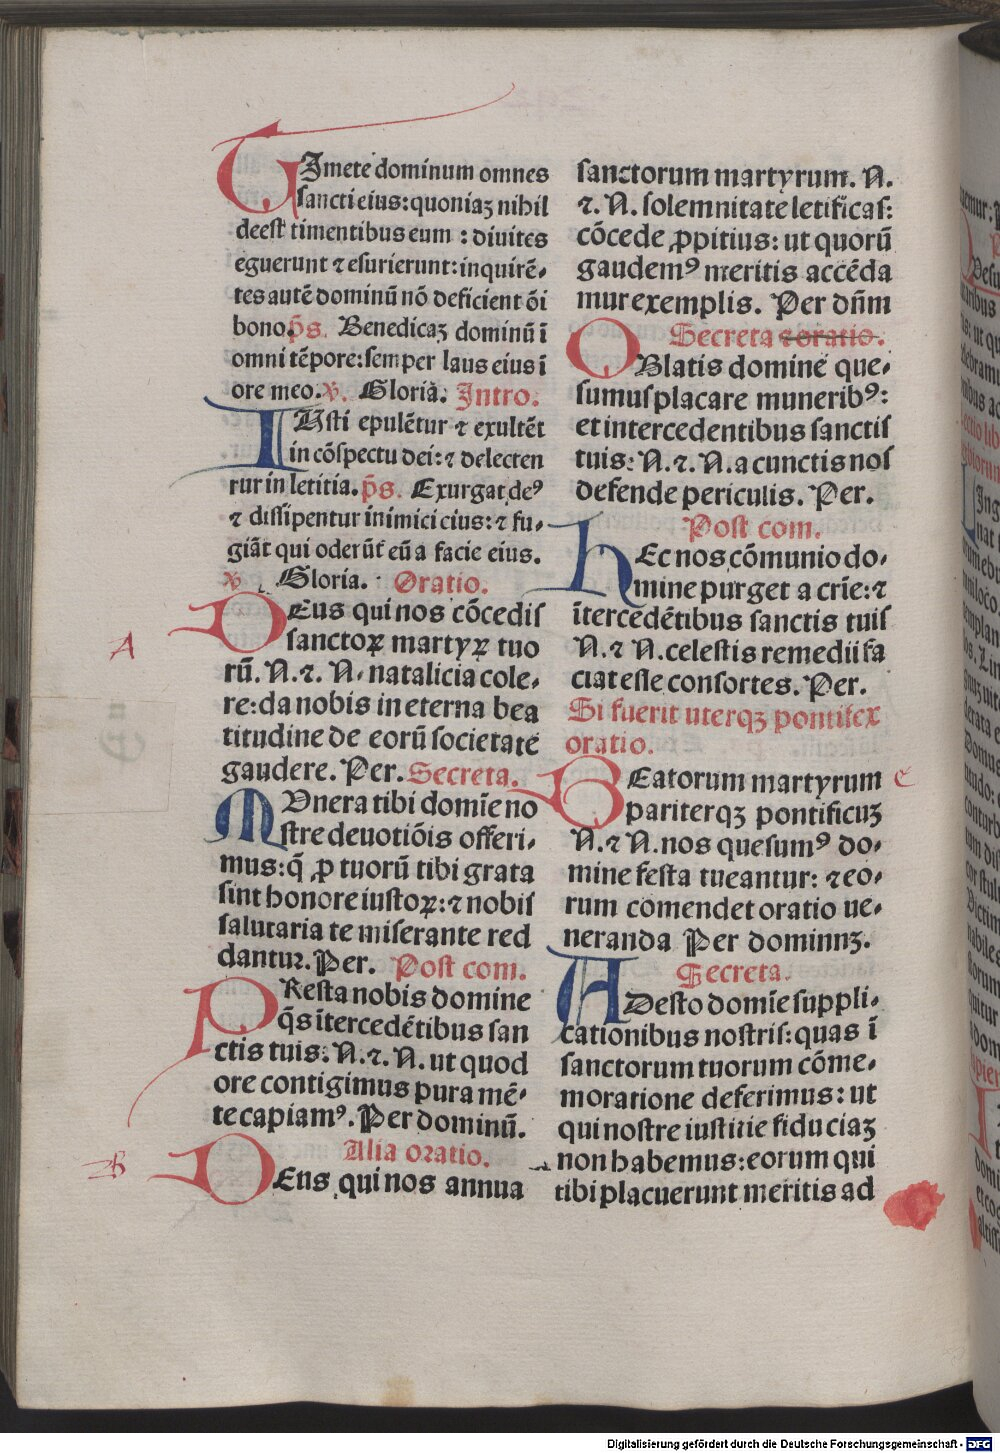 TImete dominum omnes
sancti eius: quoniaꝫ nihil
deest timentibus eum : diuites
eguerunt ⁊ esurierunt: inquirē-
tes autē dominū nō deficient ōi
bono. p̄s. Benedicaꝫ dominū ī
omni tēpore: semper laus eius ī
ore meo. ꝟ. Gloria. Intro.
IUsti epulētur ⁊ exultēt
in cōspectu dei: ⁊ delecten
tur in letitia. p̄s. Exurgat deꝰ
⁊ dissipentur inimici eius: ⁊ fu-
giāt qui oderūt eū a facie eius.
ꝟ. Gloria. Oratio.
A
DEus qui nos cōcedis
sanctoꝝ martyꝝ tuo
rū. N. ⁊. N. natalicia cole-
re: da nobis in eterna bea
titudine de eorū societate
gaudere. Per. Secreta.
MUnera tibi domīe no
stre deuotiōis offeri-
mus: q̄ ꝓ tuorū tibi grata
sint honore iustoꝝ: ⁊ nobis
salutaria te miserante red
dantur. Per. Post com.
PResta nobis domine
q̄s ītercedētibus san
ctis tuis: N. ⁊. N. ut quod
ore contigimus pura mē-
te capiamꝰ. Per dominū.
Alia oratio.
B
DEus qui nos annua
sanctorum martyrum. N.
⁊. N. solemnitate letificas:
cōcede ꝓpitius: ut quorū
gaudemꝰ meritis accēda
mur exemplis. Per dn̄m
Secreta ⁊ oratio.
OBlatis domine que-
sumus placare muneribꝰ:
et intercedentibus sanctis
tuis: N. ⁊. N. a cunctis nos
defende periculis. Per.
Post com.
hEc nos cōmunio do-
mine purget a crīe: ⁊
ītercedētibus sanctis tuis
N. ⁊ N. celestis remedii fa
ciat esse consortes. Per.
Si fuerit uterqꝫ pontifex
oratio.
BEatorum martyrum
pariterqꝫ pontificuꝫ
N. ⁊ N. nos quesumꝰ do-
mine festa tueantur: ⁊ eo-
rum comendet oratio ue-
neranda Per dominnꝫ.
Secreta.
ADesto domīe suppli-
cationibus nostris: quas ī
sanctorum tuorum cōme-
moratione deferimus: ut
qui nostre iustitie fiduciaꝫ
non habemus: eorum qui
tibi placuerunt meritis ad
Digitalisierung gefördert durch die Deutsche Forschungsgemeinschaft - DFG